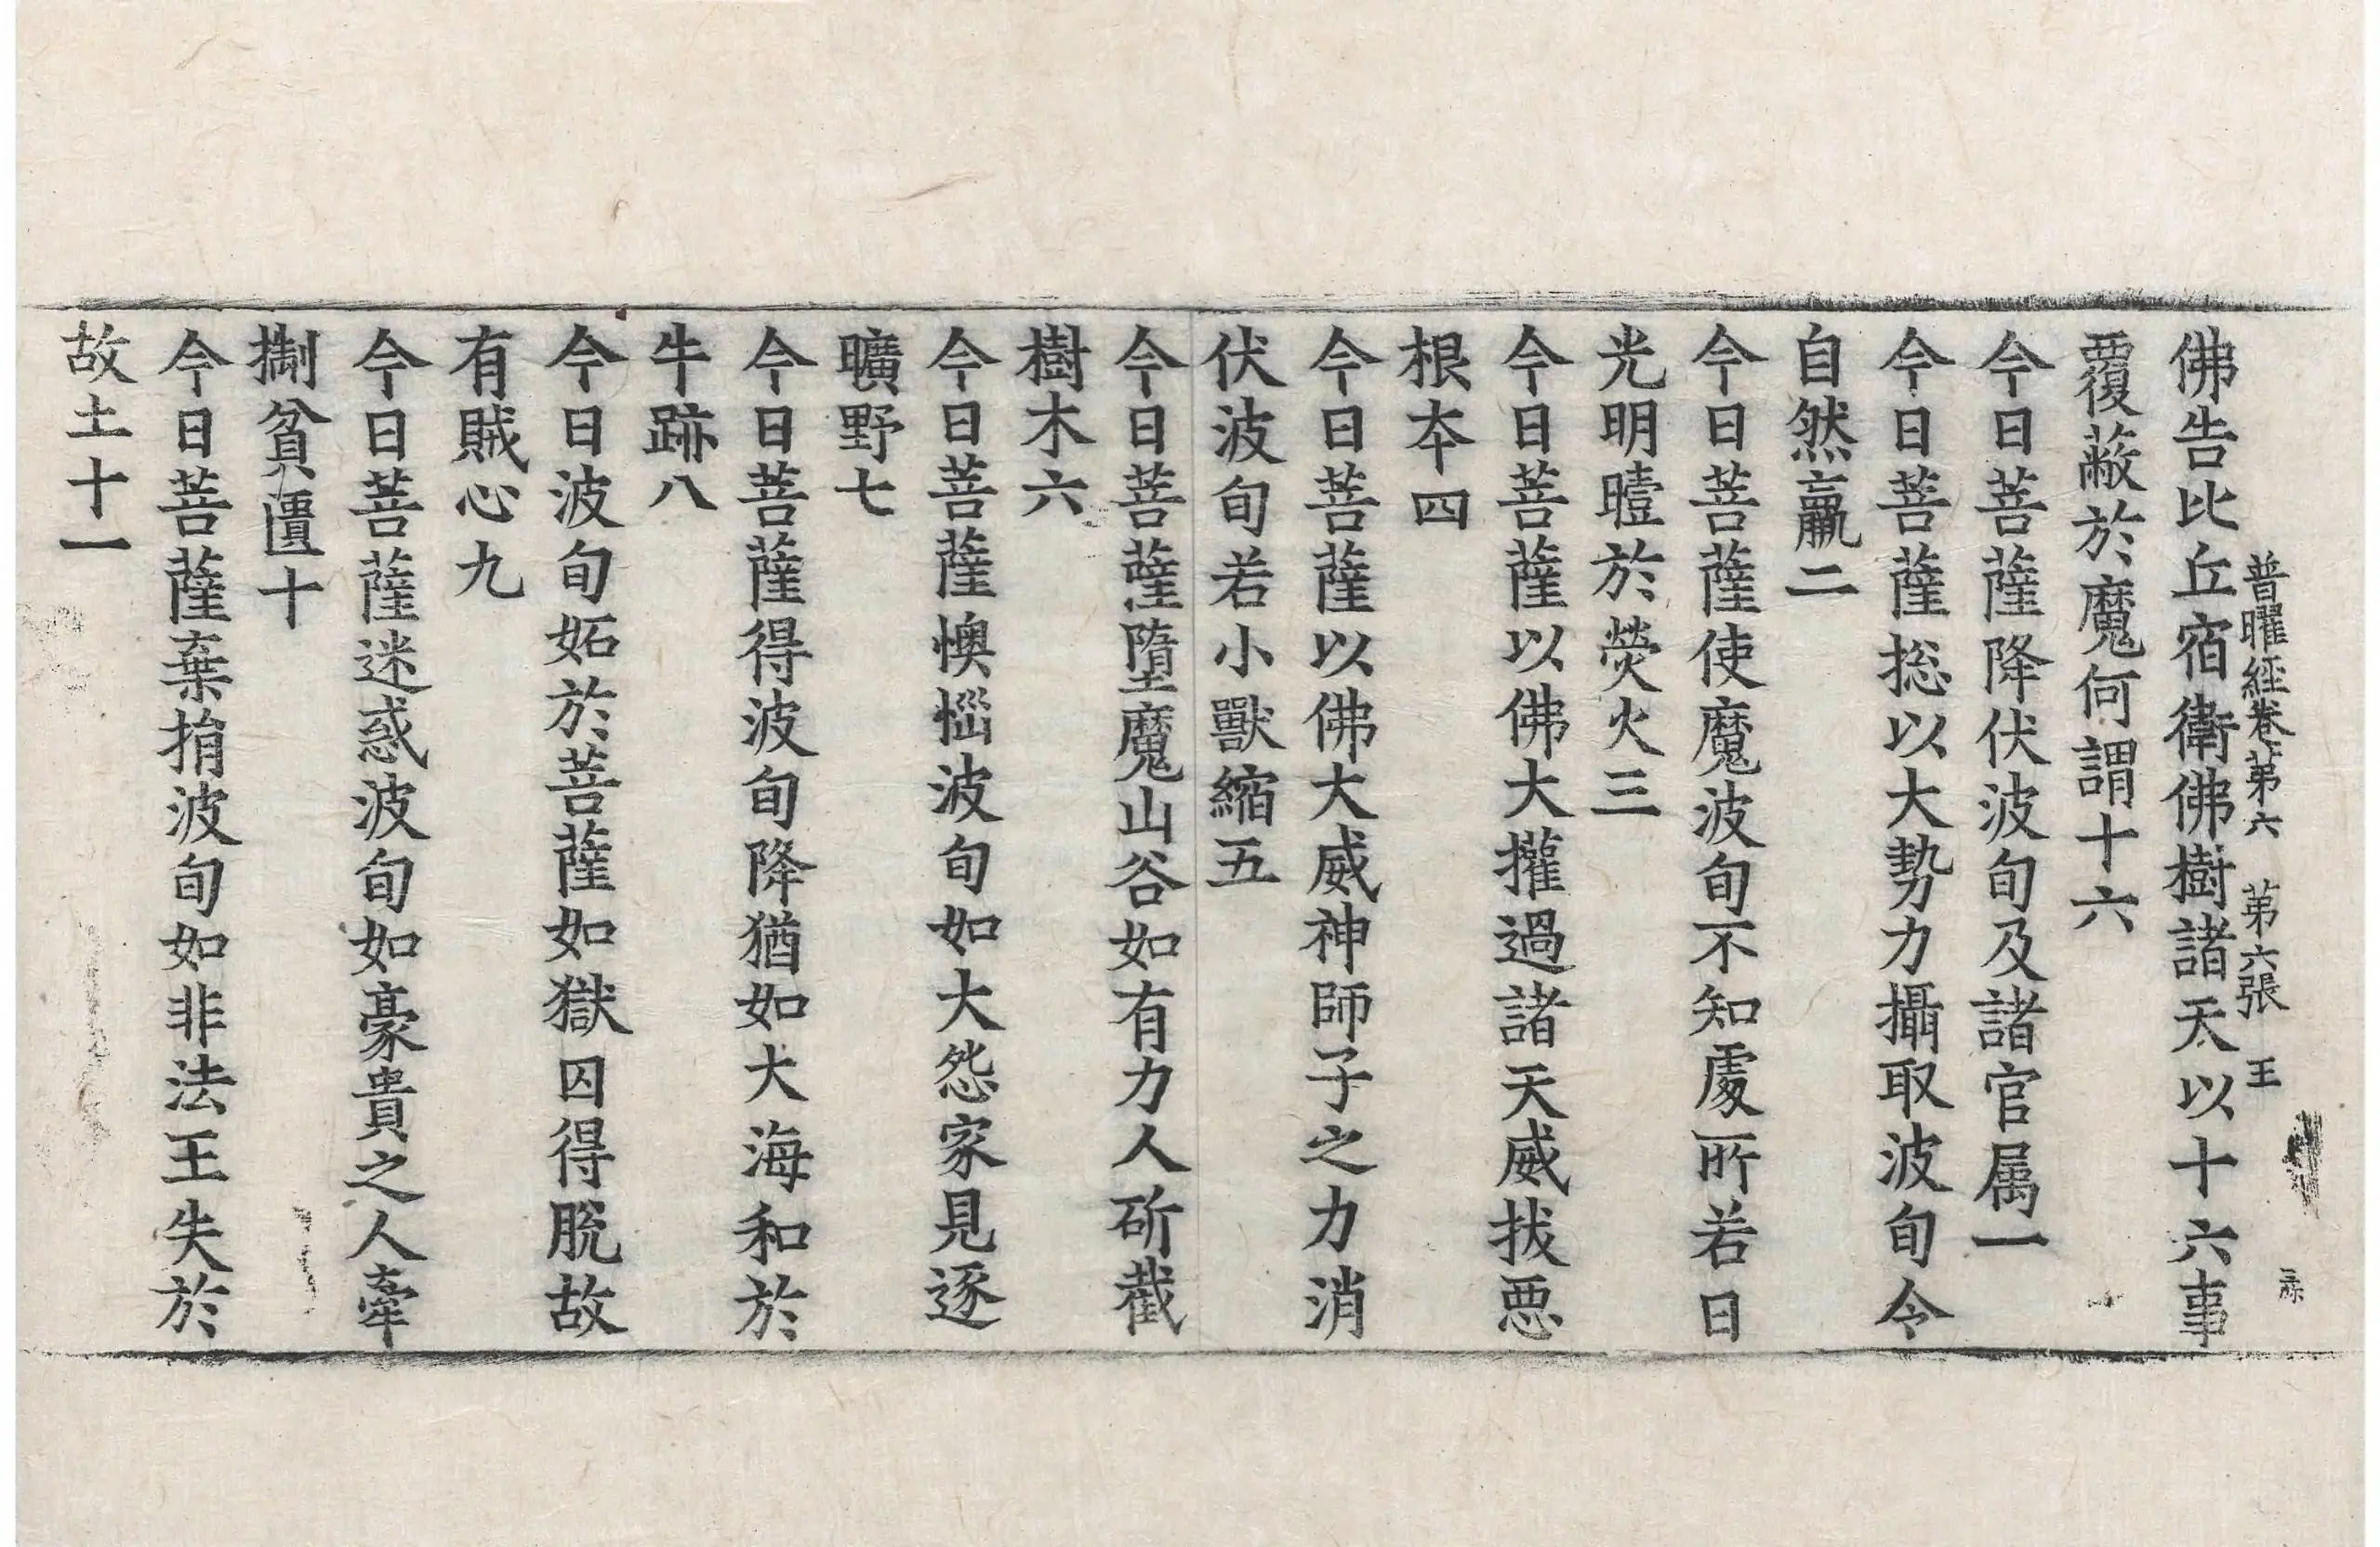 普曜經卷第六　第六張　王
佛告比丘宿衛佛樹諸天以十六事
覆蔽於魔何謂十六
今日菩薩降伏波旬及諸官属一
今日菩薩捴以大勢力攝取波旬令
自然羸二
今日菩薩使魔波旬不知處所若日
光明曀於熒火三
今日菩薩以佛大攉過諸天威拔惡
根本四
今日菩薩以佛大威神師子之力消
伏波旬若小獸縮五
今日菩薩墮魔山谷如有力人斫截
樹木六
今日菩薩懊惱波旬如大怨家見逐
曠野七
今日菩薩得波旬降猶如大海和於
牛跡八
今日波旬妬於菩薩如獄囚得脫故
有賊心九
今日菩薩迷惑波旬如豪貴之人牽
掣貧匱十
今日菩薩棄捐波旬如非法王失於
故土十一